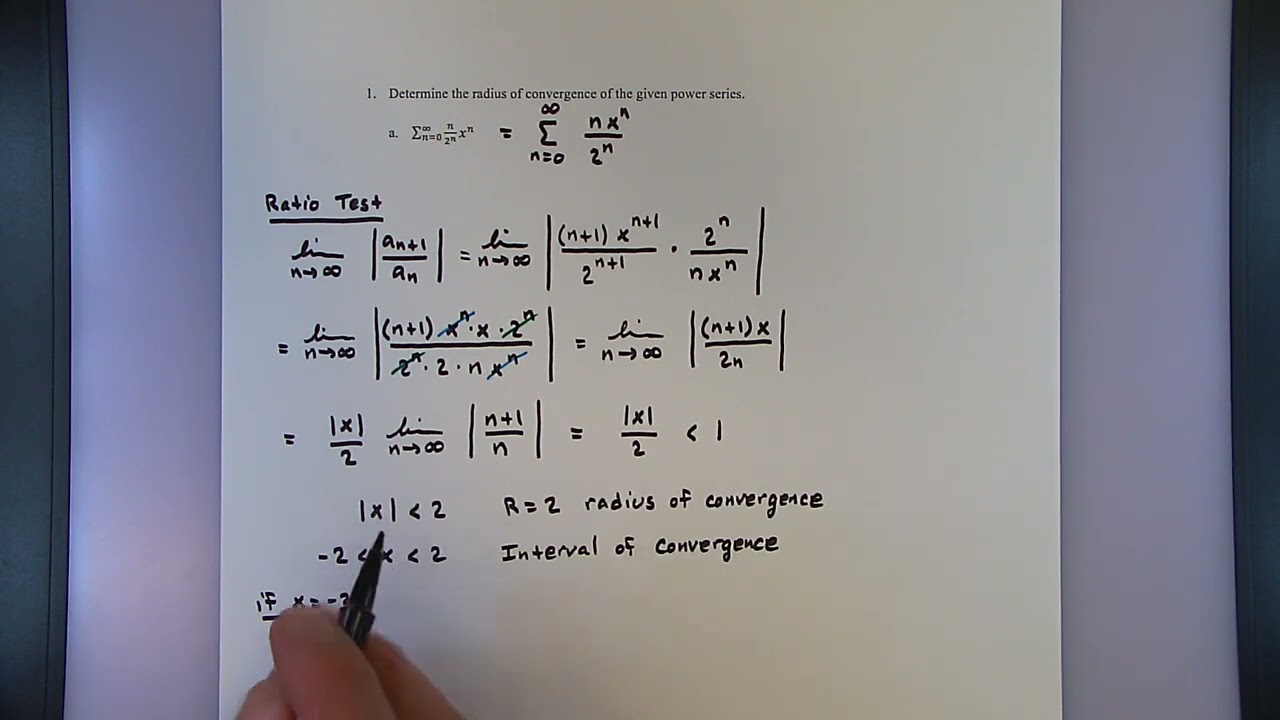 1. Determine the radius of convergence of the given power series.
a. ∑_{n=0}^{∞} n/2^n x^n = ∑_{n=0}^{∞} nx^n/2^n
Ratio Test
lim_{n→∞} |a_{n+1}/a_n| = lim_{n→∞} |(n+1) x^{n+1}/2^{n+1} · 2^n/nx^n|
= lim_{n→∞} |(n+1) x^n · x · 2^n/2^n · 2 · n x^n| = lim_{n→∞} |(n+1)x/2n|
= |x|/2 lim_{n→∞} |n+1/n| = |x|/2 < 1
|x| < 2 R = 2 radius of convergence
-2 < x < 2 Interval of convergence
if x = -2